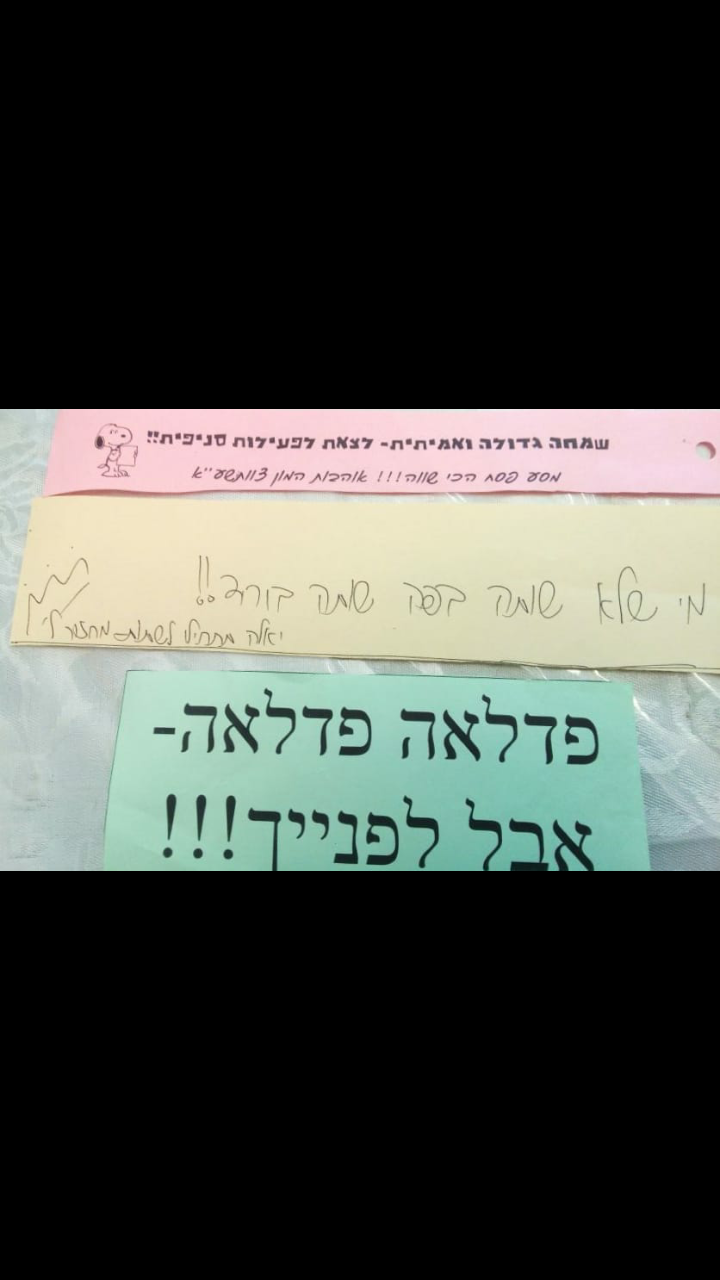 שמחה גדולה ואמיתית- לצאת לפעילות סניפית!!
מסע פסח הכי שווה!!! אוהבות המון צוותשע"א
מי שלא שותה בפה שותה בוריד!!
יאלה מתחיל לשתות
פדלאה פדלאה-
אבל לפנייך!!!